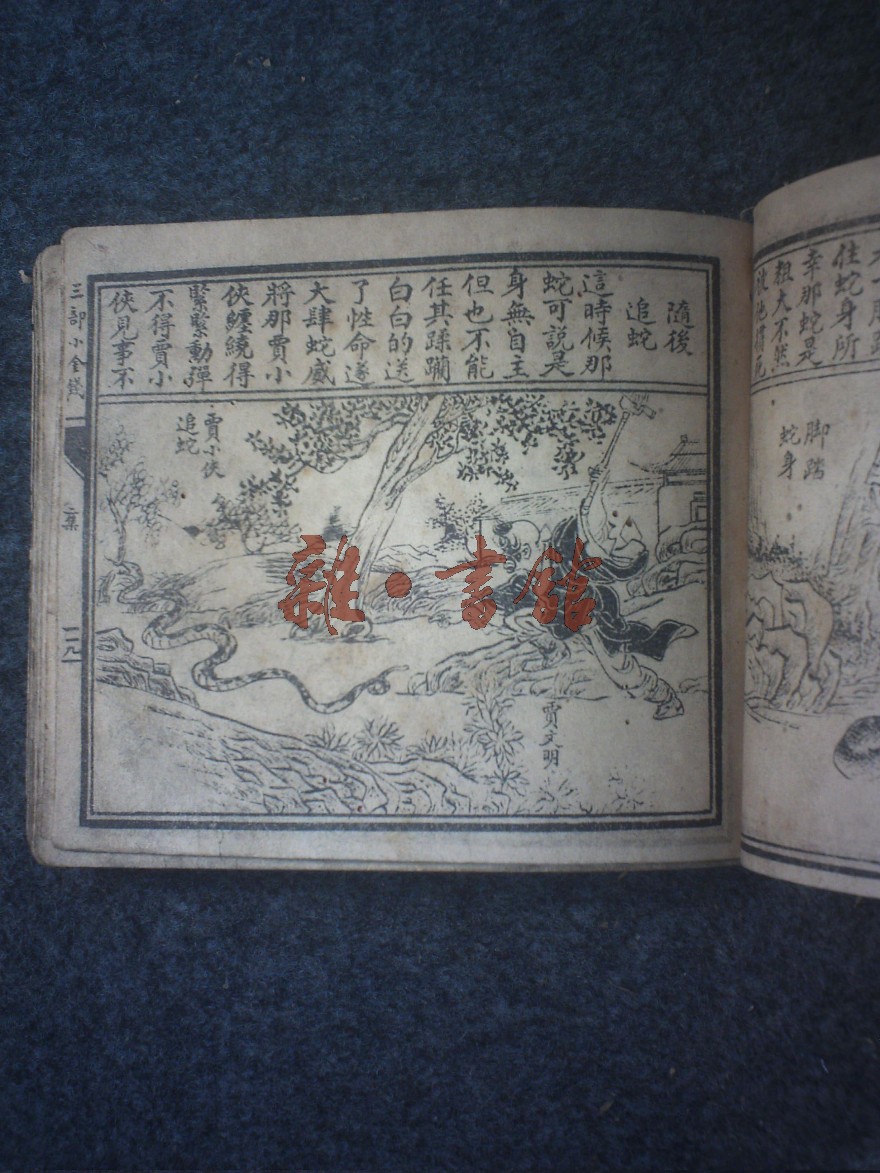 隨後
追蛇
這時候那
蛇可説是
身無自主
但也不能
任其蹂躪
白白的送
了性命遂
大肆蛇威
將那賈小
俠纏繞得
緊緊動彈
不得賈小
俠見事不
賈小俠
追蛇
賈文明
三部小金錢
二集
一一九
住蛇身所
幸那蛇是
粗大不然
脚踏
蛇身
雜·書館